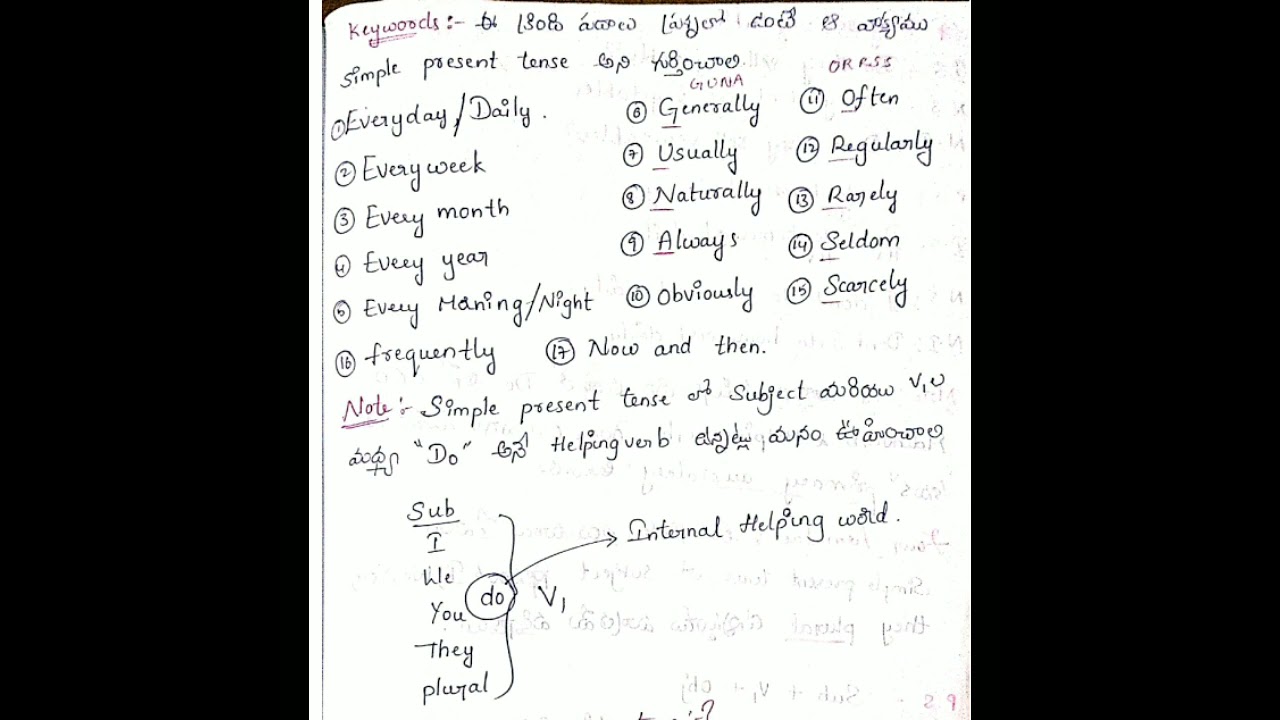 Keywords :- ఈ క్రింది పదాలు ప్రశ్నలో ఉంటే ఆ వాక్యము
simple present tense అని గుర్తించాలి.
ORRSS
GUNA
① Everyday / Daily . ⑥ Generally ⑪ Often
② Every week ⑦ Usually ⑫ Regularly
③ Every month ⑧ Naturally ⑬ Rarely
④ Every year ⑨ Always ⑭ Seldom
⑤ Every Morning/Night ⑩ Obviously ⑮ Scarcely
⑯ frequently ⑰ Now and then.
Note :- Simple present tense లో Subject మరియు V₁ల
మధ్య "Do" అనే Helping verb ఉన్నట్లు మనం ఊహించాలి
Sub
I
We
You
They
plural
do V₁
Internal Helping word.